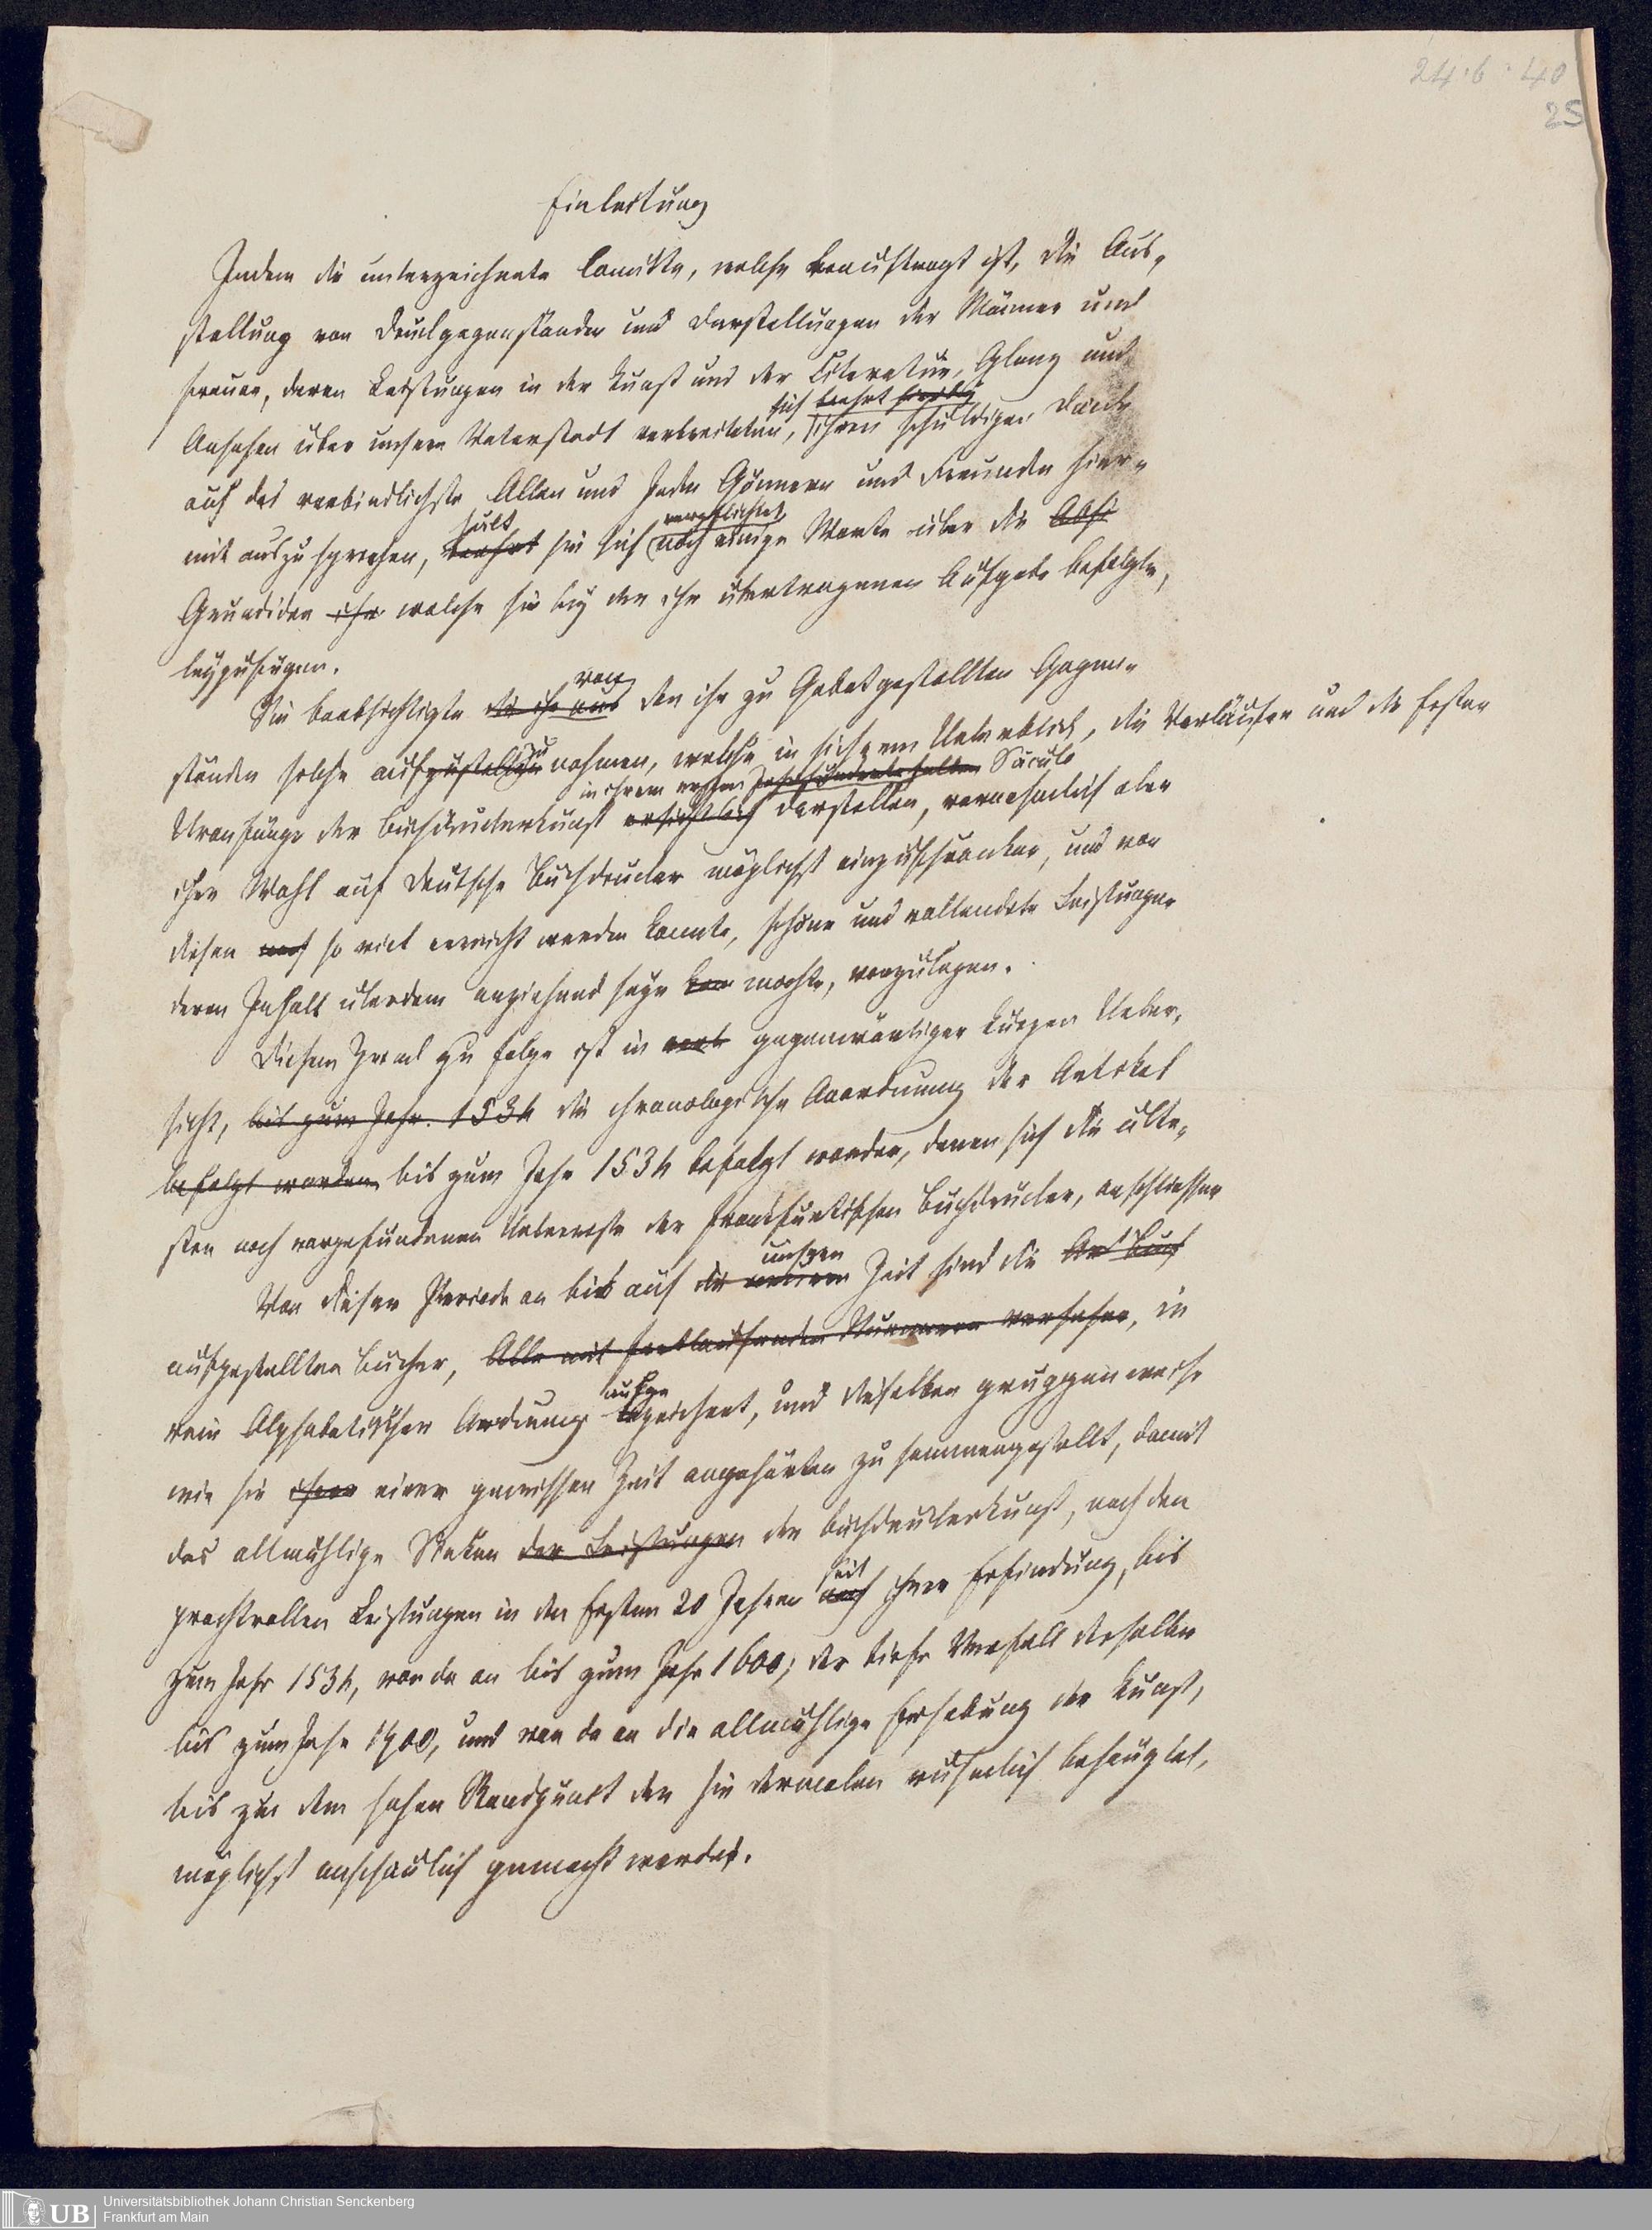 24.6.40
25
Einleitung
Indem die unterzeichnete Comitte, welche beauftragt ist, die Aus-
stellung von Druckgegenständen und Darstellungen der Männer und
Frauen, deren Leistungen in der Kunst und der Literatur, Glanz und
sich beehrt
Ansehen über unsere Vaterstadt verbreiteten, ihren schuldigen Dank
auf das verbindlichste Allen und Jeden Gönnern und Freunden hier-
hält verpflichtet
mit auszusprechen, beehrt sie sich noch einige Worte über die Absi
Grundidee ihr welche sie bey der ihr übertragenen Aufgabe befolgte,
beyzufügen.
von
Sie beabsichtigte die ihr aus den ihr zu Gebot gestellten Gegen-
ständen solche aufzustellen zu nehmen, welche in sich einen Ueberblick, die Vorläufer und die ersten
in ihrem ersten Jahrhunderte Säculo
Uranfänge der Buchdruckerkunst ersichtlich darstellen, vornehmlich aber
ihre Wahl auf deutsche Buchdrucker möglichst einzuschränken, und von
diesen noch so viel erreicht werden konnte, schöne und vollendete Leistungen
deren Inhalt überdem anziehend seyn mochte, vorzulegen.
Diesem Zweck zu folge ist in gegenwärtiger kurzen Ueber-
sicht, bis zum Jahr. 1534 die chronologische Anordnung der Artikel
befolgt worden bis zum Jahr 1534 befolgt worden, denen sich die älte-
sten noch vorgefundenen Ueberreste der Frankfurtischen Buchdrucker, anschliessen
unsere
Von dieser Periode an bis auf die neuere Zeit sind die
aufgestellten Bücher, Alle mit fortlaufenden Nummern versehen, in
aufge
rein Alphabetischer Ordnung bezeichnet, und dieselben gruppenweise
wie sie ihrer einer gewissen Zeit angehörten zusammengestellt, damit
das allmählige Sinken der Leistungen der Buchdruckerkunst, nach den
seit
prachtvollen Leistungen in den Ersten 20 Jahren nach ihrer Erfindung, bis
zum Jahr 1534, von da an bis zum Jahr 1600; der tiefe Verfall derselben
bis zum Jahr 1700, und von da an die allmählige Erhebung der Kunst,
bis zu dem hohen Standpunct den sie dermalen rühmlich behauptet,
möglichst anschaulich gemacht werde.
UB
Universitätsbibliothek Johann Christian Senckenberg
Frankfurt am Main